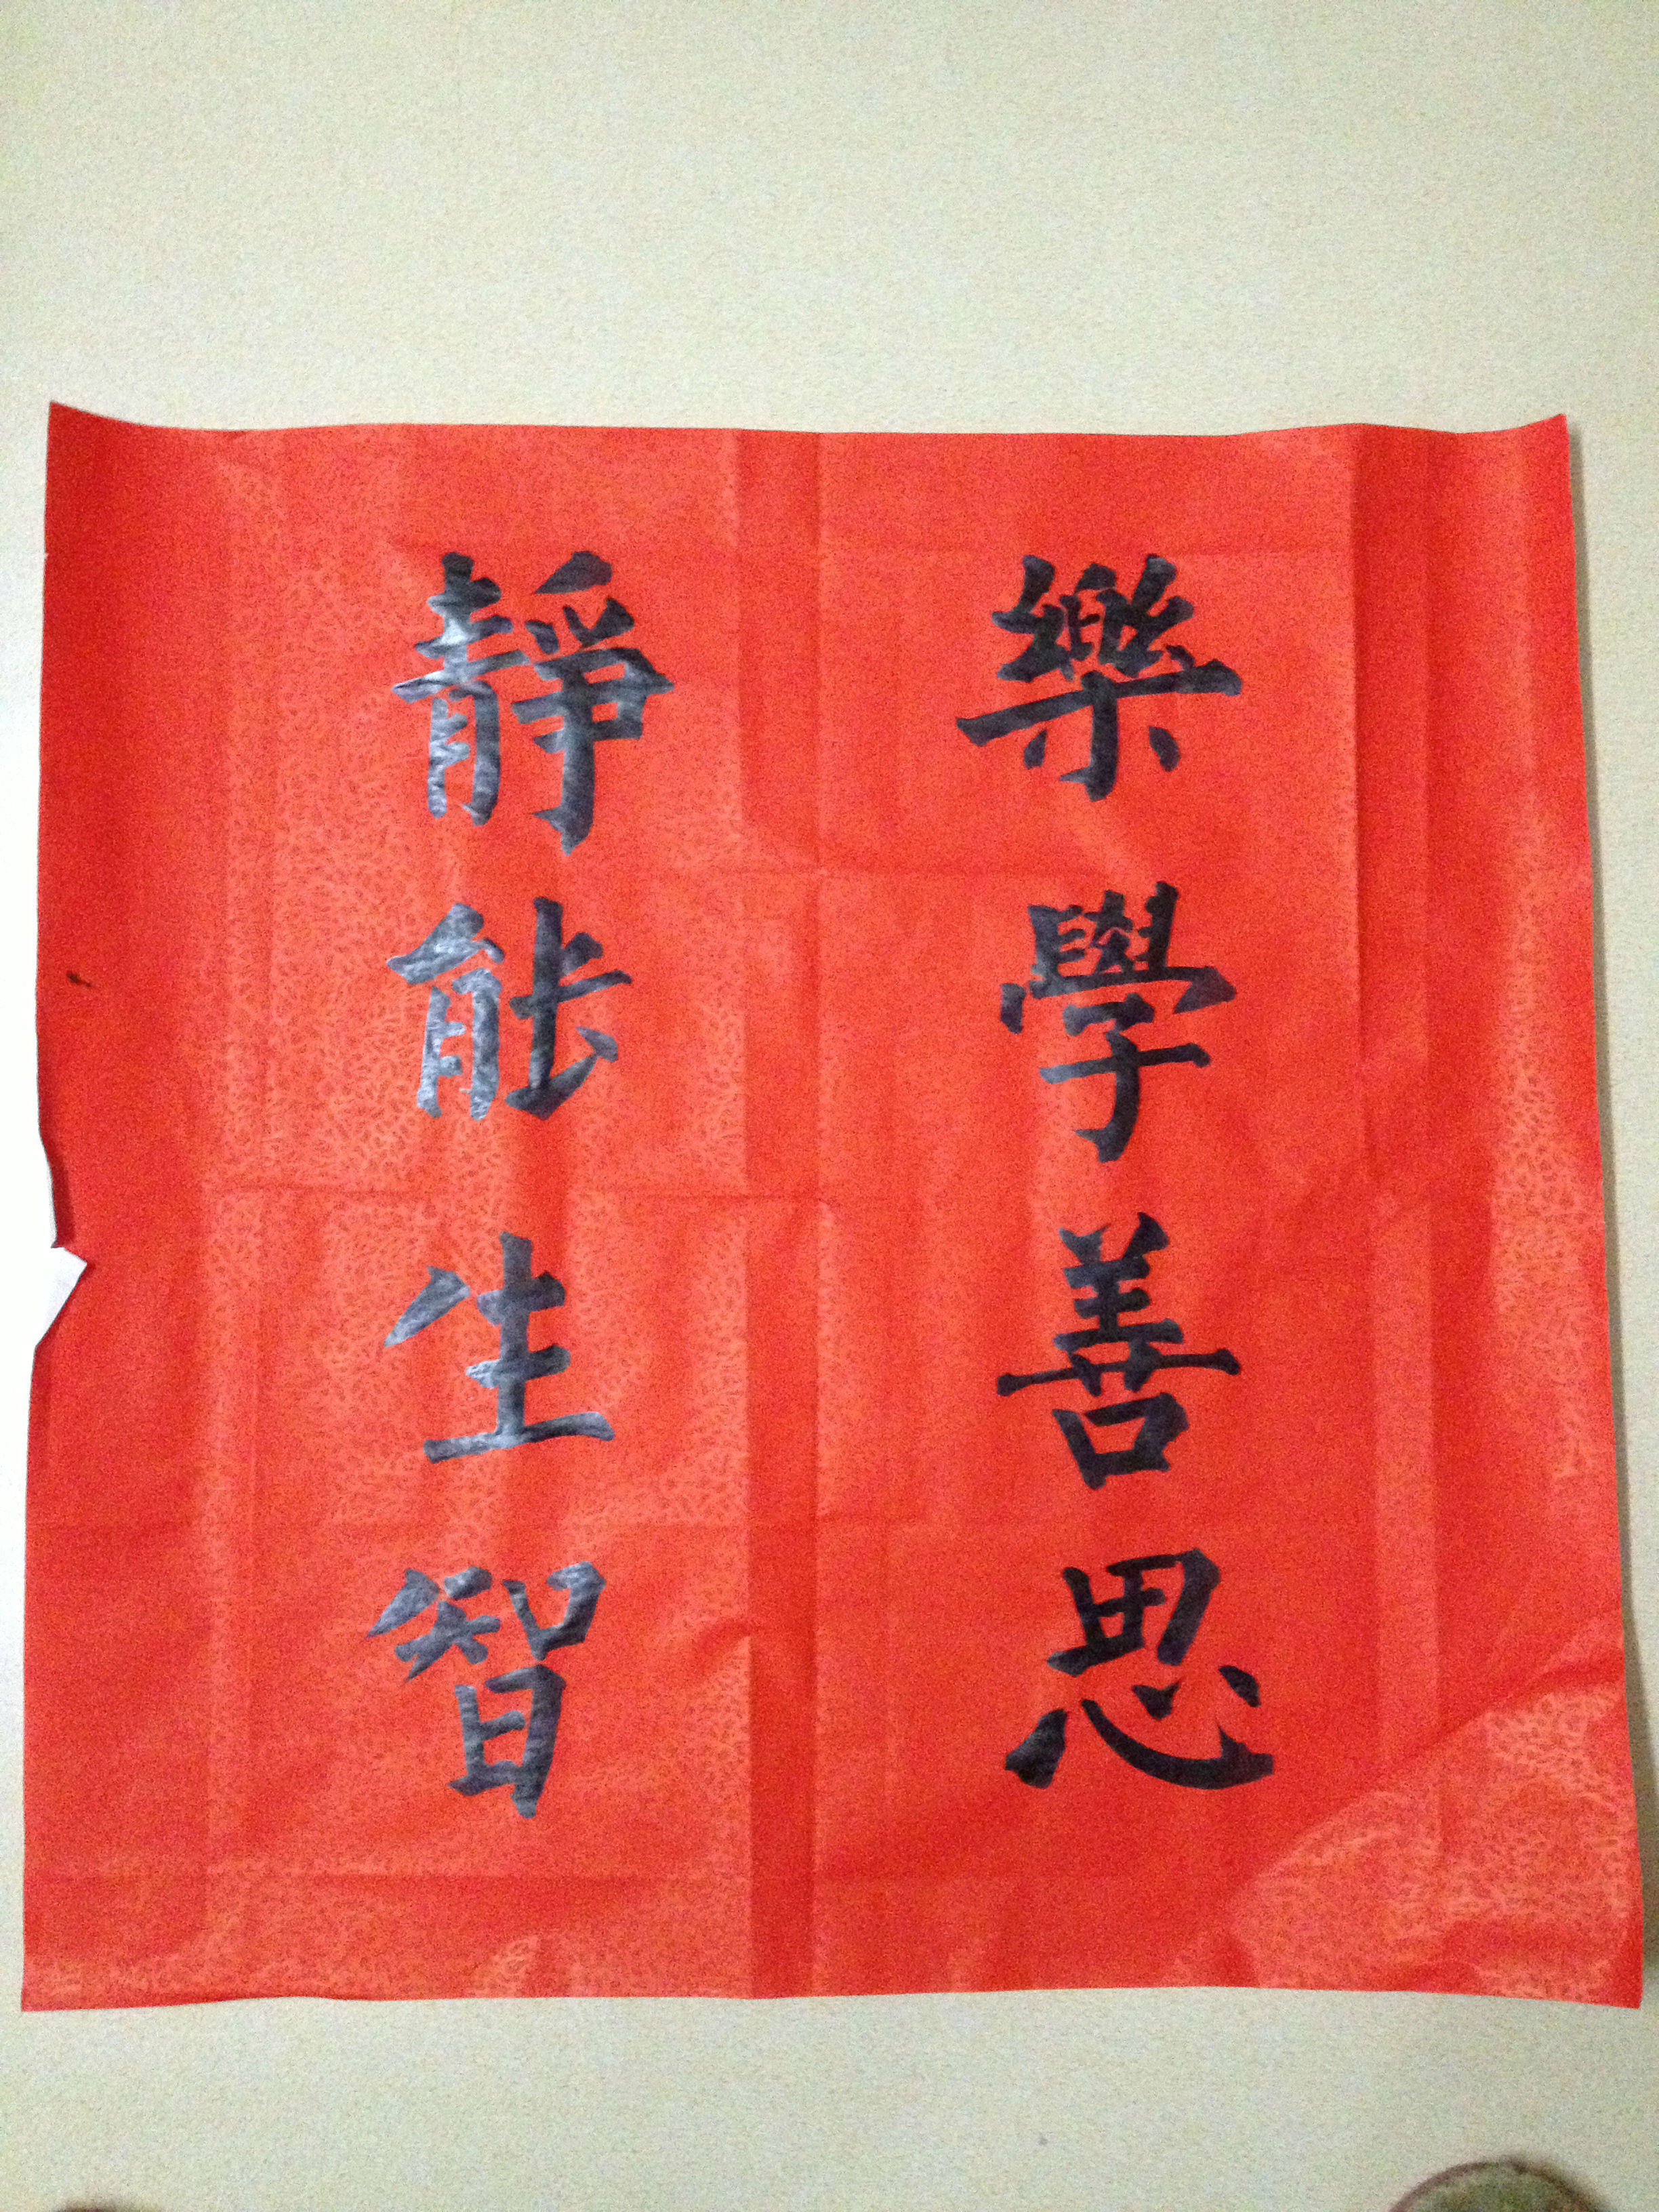 樂學善思
靜能生智